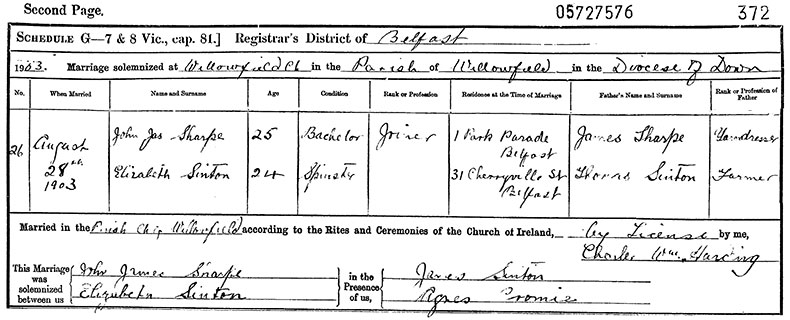 Second Page. 05727576 372
SCHEDULE G—7 & 8 Vic., cap. 81.] Registrar's District of Belfast
1903. Marriage solemnized at Willowfield Ch in the Parish of Willowfield in the Diocese of Down
No. When Married Name and Surname Age Condition Rank or Profession Residence at the Time of Marriage Father's Name and Surname Rank or Profession of Father
26 August 28th 1903 John Jas Sharpe 25 Bachelor Joiner 1 Park Parade Belfast James Sharpe
Elizabeth Sinton 24 Spinster 31 Cherryville St Belfast Thomas Sinton Farmer
Married in the Parish Ch, Willowfield according to the Rites and Ceremonies of the Church of Ireland, by License by me,
Charles Wm. Harding
This Marriage was solemnized between us John James Sharpe in the Presence of us, James Sinton
Elizabeth Sinton Agnes